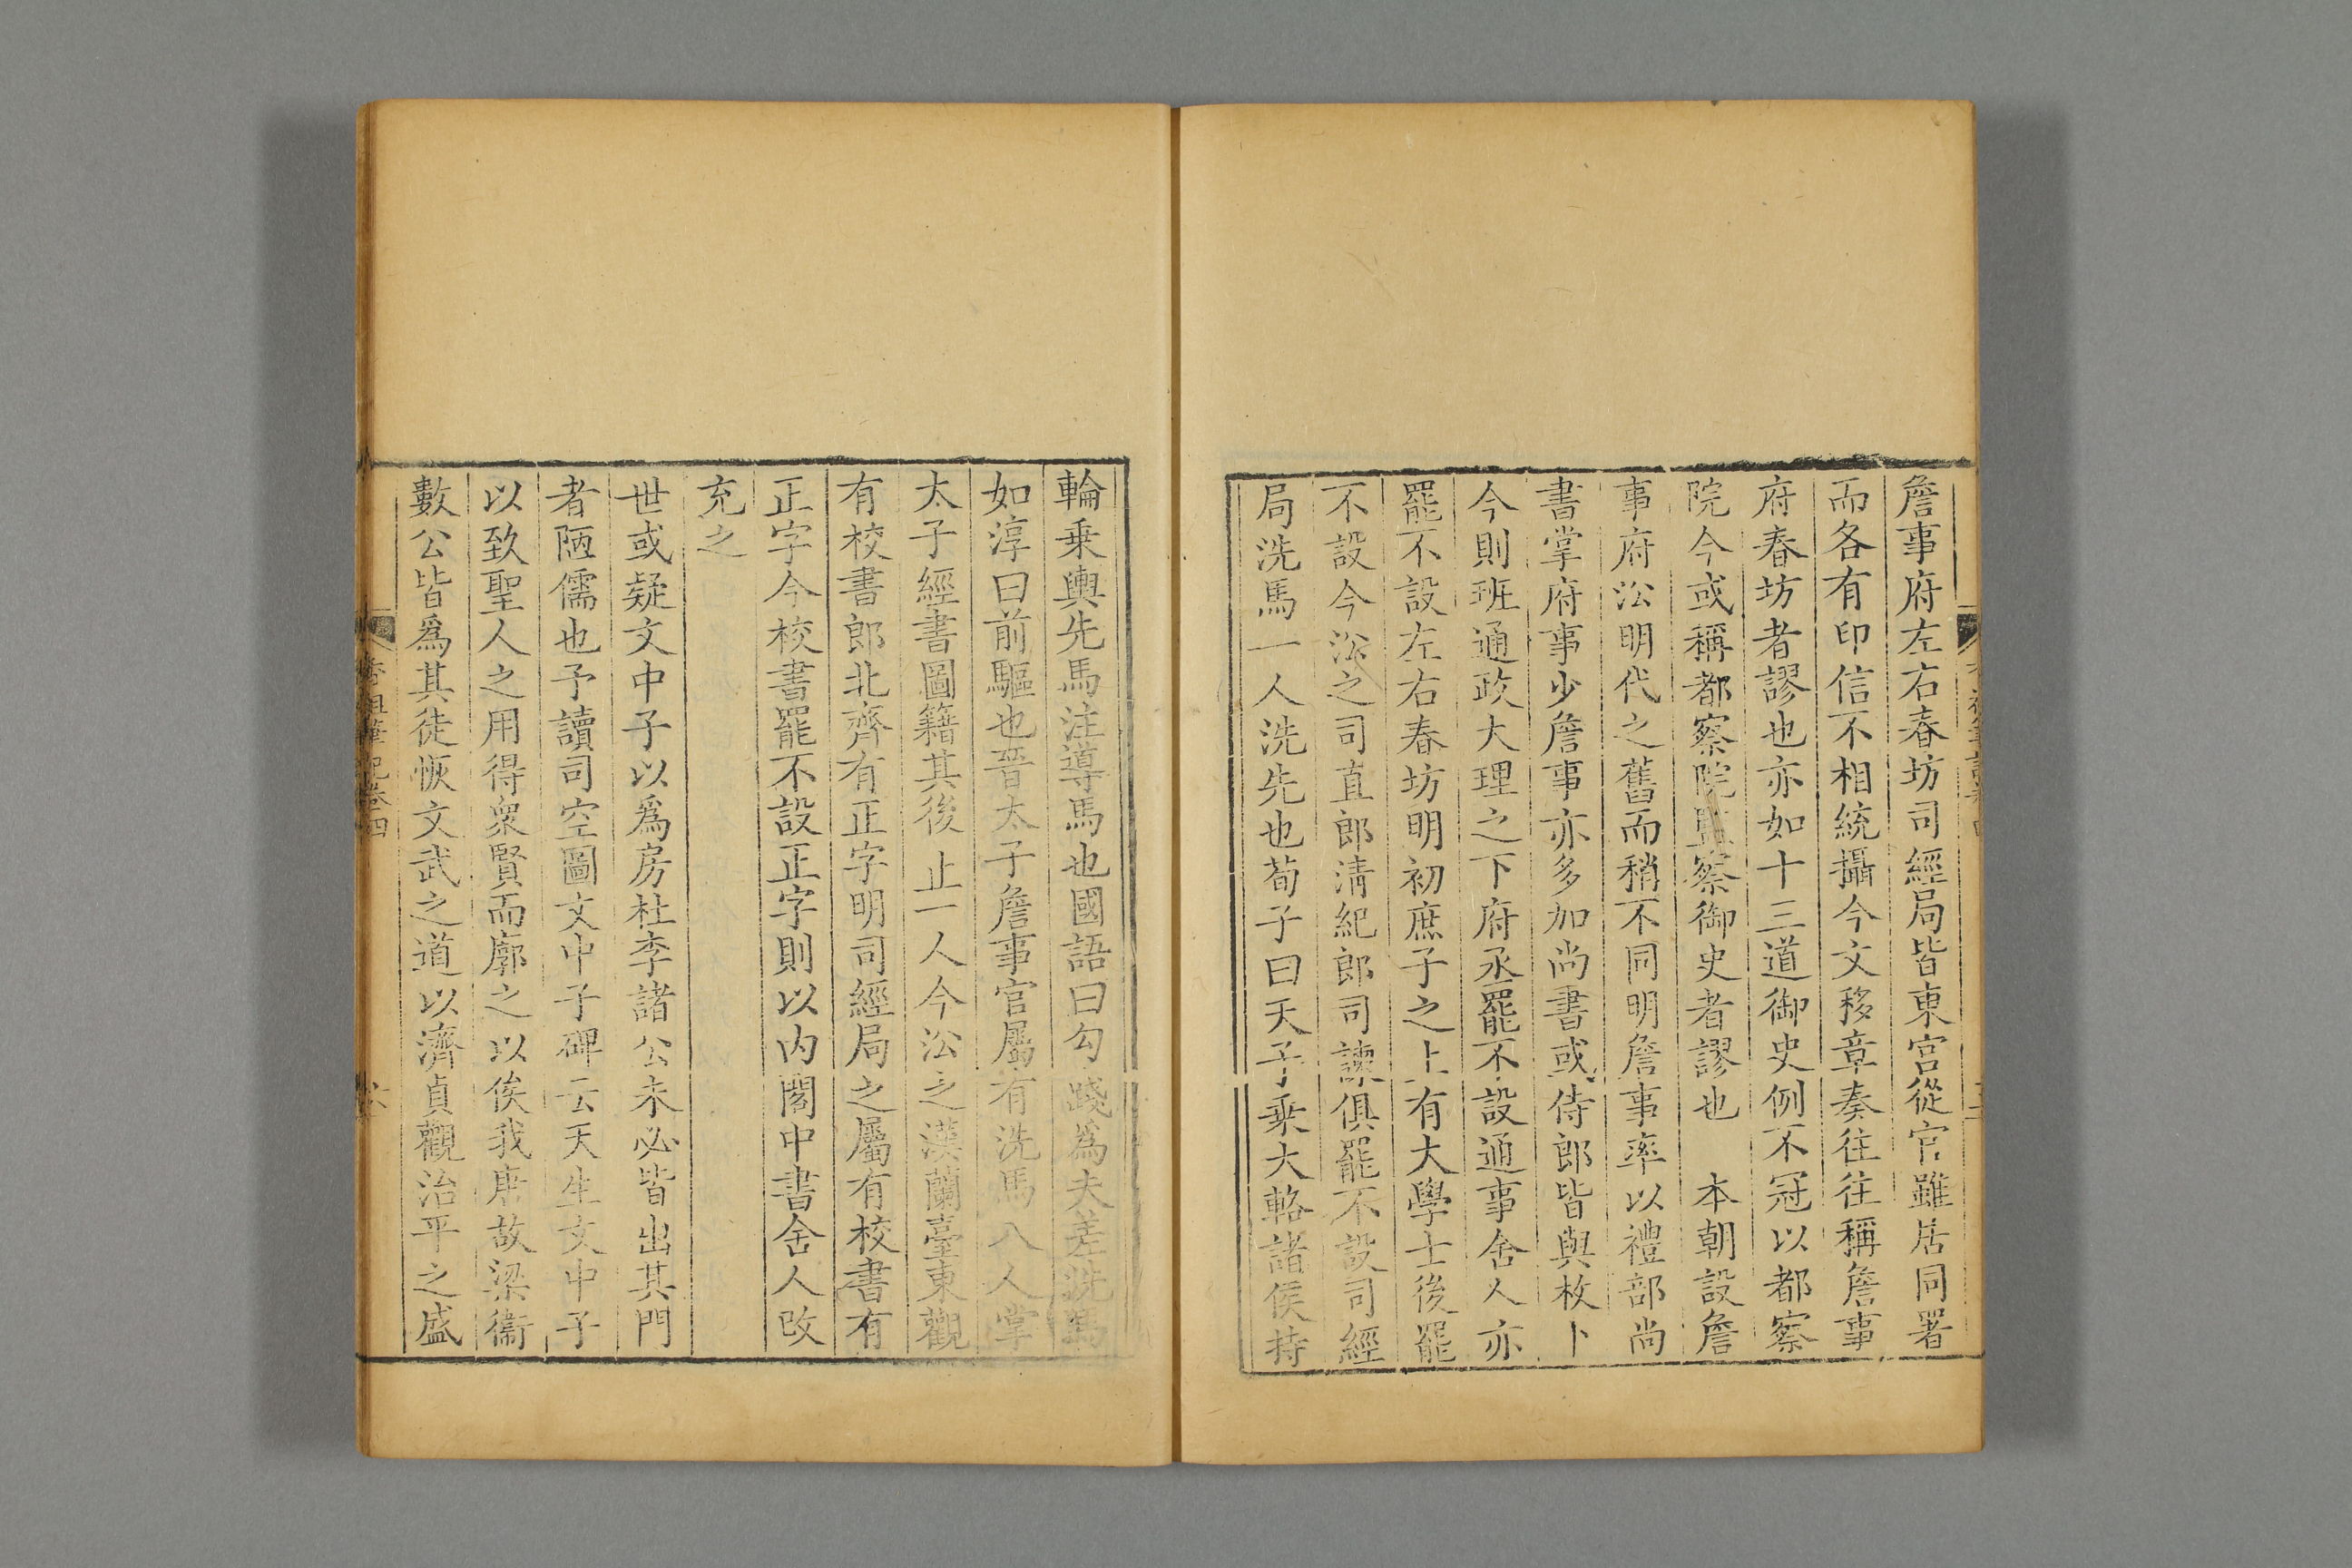 詹事府左右春坊司經局皆東宮從官雖居同署
而各有印信不相統攝今文移章奏往往稱詹事
府春坊者謬也亦如十三道御史例不冠以都察
院今或稱都察院監察御史者謬也 本朝設詹
事府沿明代之舊而稍不同明詹事率以禮部尚
書掌府事少詹事亦多加尚書或侍郎皆與枚卜
今則班通政大理之下府丞罷不設通事舍人亦
罷不設左右春坊明初庶子之上有大學士後罷
不設今沿之司直郎淸紀郎司諫俱罷不設司經
局洗馬一人洗先也荀子曰天子乗大輅諸侯持
輪乗輿先馬注導馬也國語曰勾踐爲夫差洗馬
如淳曰前驅也晉太子詹事官屬有洗馬八人掌
太子經書圖籍其後止一人今沿之漢蘭臺東觀
有校書郎北齊有正字明司經局之屬有校書有
正字今校書罷不設正字則以内閣中書舍人改
充之
世或疑文中子以爲房杜李諸公未必皆出其門
者陋儒也予讀司空圖文中子碑云天生文中子
以致聖人之用得衆賢而廓之以俟我唐故梁衞
數公皆爲其徒恢文武之道以濟貞觀治平之盛
香祖筆記卷四